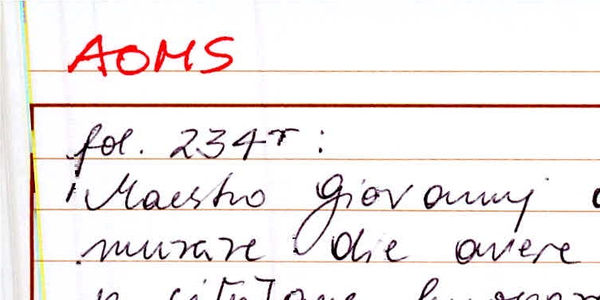 AOMS
fol. 234r:
Maestro Giovannj
murare die avere